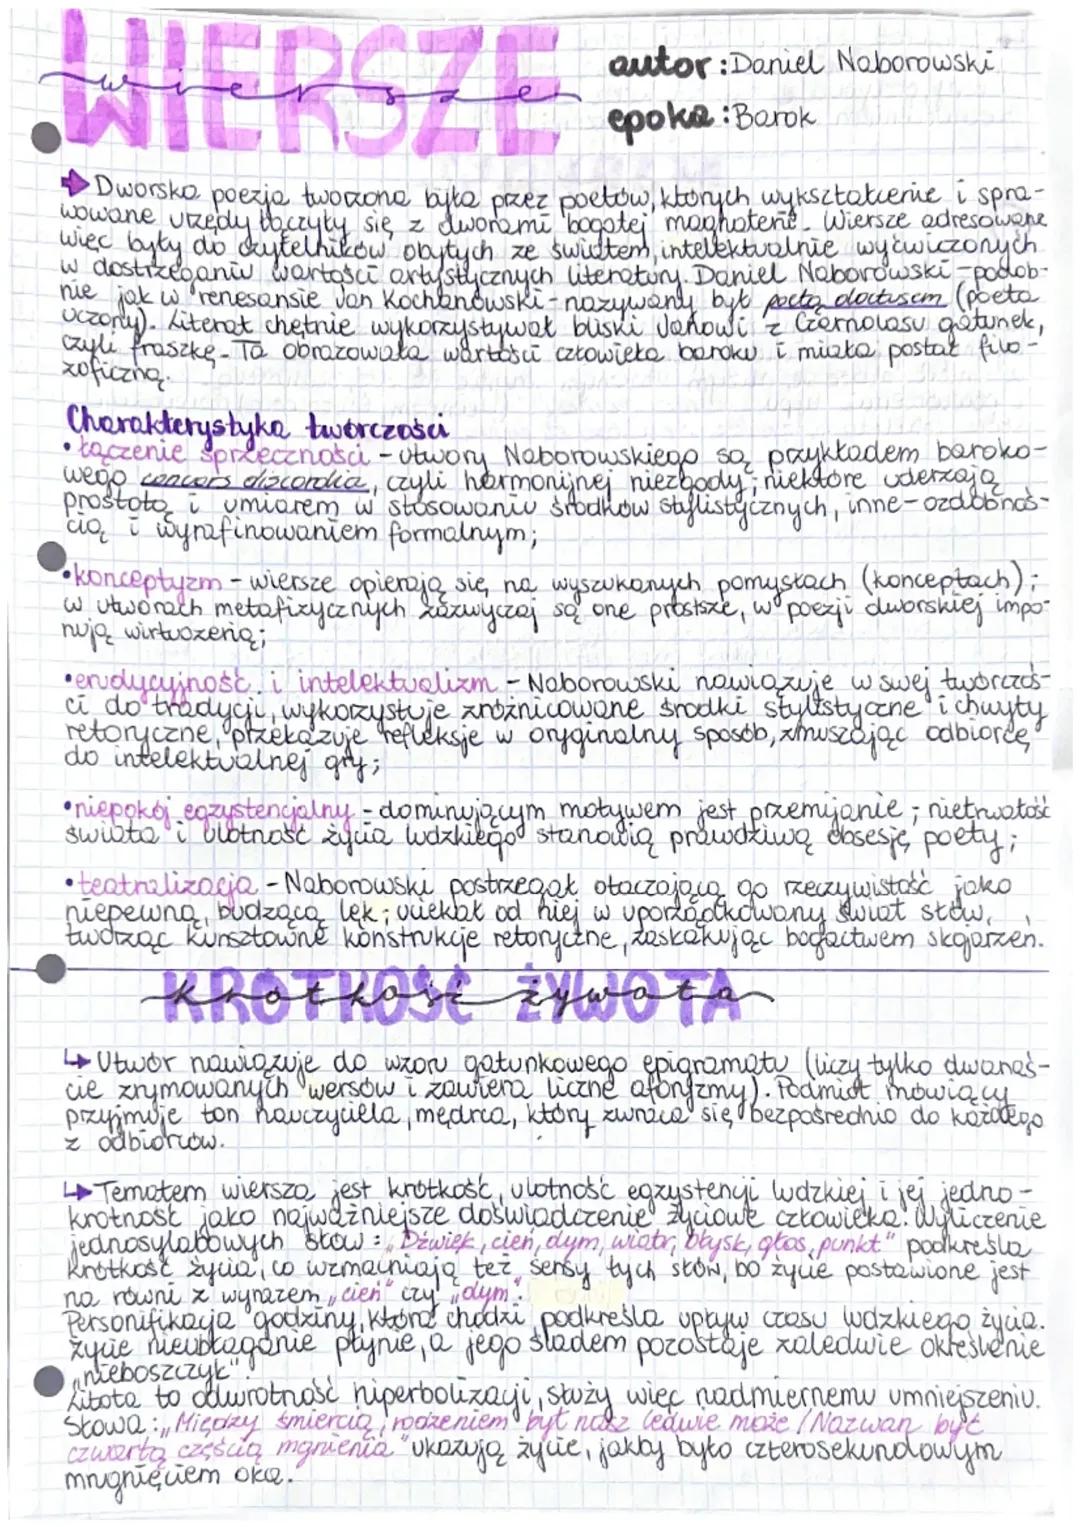 WIERSZE
wiersze
autor: Daniel Naborowski
epoka: Barok
Dworska poezja tworzona była przez poetów, których wykształcenie i spra-
wowane urzędy łączyły się z dworami bogatej magnaterii. Wiersze adresowane
więc były do czytelników obytych ze światem, intelektualnie wyćwiczonych
w dostrzeganiu wartości artystycznych literatury. Daniel Naborowski - podob-
nie jak w renesansie Jan Kochanowski - nazywany był poetą doctusem (poeta
uczony). Literat chętnie wykorzystywał bliski Janowi z Czarnolasu gatunek,
czyli fraszkę. Ta obrazowała wartości człowieka baroku i miała postać filo-
zoficzną.
Charakterystyka twórczości
• łączenie sprzeczności - utwory Naborowskiego są przykładem baroko-
wego concors discordia, czyli harmonijnej niezgody; niektóre uderzają
prostotą i umiarem w stosowaniu środków stylistycznych, inne - ozdobnoś-
cią i wyrafinowaniem formalnym;
• konceptyzm - wiersze opierają się na wyszukanych pomysłach (konceptach);
w utworach metafizycznych zazwyczaj są one prostsze, w poezji dworskiej impo-
nują wirtuozerią;
• erudycyjność i intelektualizm - Naborowski nawiązuje w swej twórczoś-
ci do tradycji, wykorzystuje zróżnicowane środki stylistyczne i chwyty
retoryczne, przekazuje refleksje w oryginalny sposób, zmuszając odbiorcę
do intelektualnej gry;
• niepokój egzystencjalny - dominującym motywem jest przemijanie; nietrwałość
świata i ulotność życia ludzkiego stanowią prawdziwą obsesję poety;
• teatralizacja - Naborowski postrzegał otaczającą go rzeczywistość jako
niepewną, budzącą lęk; uciekał od niej w uporządkowany świat słów,
tworząc kunsztowne konstrukcje retoryczne, zaskakując bogactwem skojarzeń.
KRÓTKOŚĆ ŻYWOTA
krótkość żywota
↳ Utwór nawiązuje do wzoru gatunkowego epigramatu (liczy tylko dwanaś-
cie zrymowanych wersów i zawiera liczne aforyzmy). Podmiot mówiący
przyjmuje ton nauczyciela, mędrca, który zwraca się bezpośrednio do każdego
z odbiorców.
↳ Tematem wiersza jest krótkość, ulotność egzystencji ludzkiej i jej jedno-
krotność jako najważniejsze doświadczenie życiowe człowieka. Wyliczenie
jednosylabowych słów: „Dźwięk, cień, dym, wiatr, błysk, głos, punkt" podkreśla
krótkość życia, co wzmacniają też sensy tych słów, bo życie postawione jest
na równi z wyrazem „cień" czy „dym".
Personifikacja godziny, która chodzi, podkreśla upływ czasu ludzkiego życia.
Życie nieubłaganie płynie, a jego śladem pozostaje zaledwie określenie
„nieboszczyk".
Litota to odwrotność hiperbolizacji, służy więc nadmiernemu umniejszeniu.
Słowa: „Między śmiercią, rodzeniem byt nasz ledwie może / Nazwan być
czwartą częścią mgnienia" ukazują życie, jakby było czterosekundowym
mrugnięciem oka.